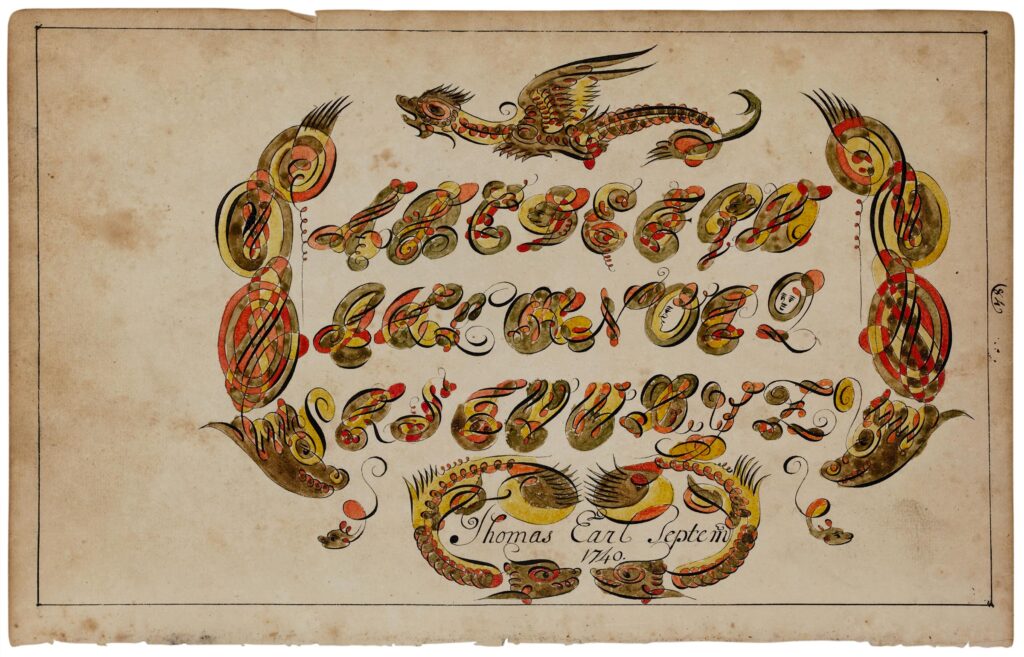 A B C D E F G H
I K L M N O P Q
R S T U W X Y Z
Thomas Earl Septem
1740.